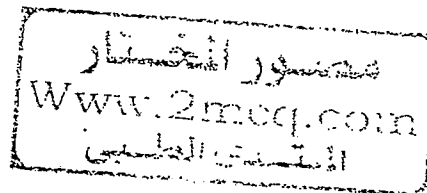 منصور المختار
Www.2mcq.com
المنتدى الطبي